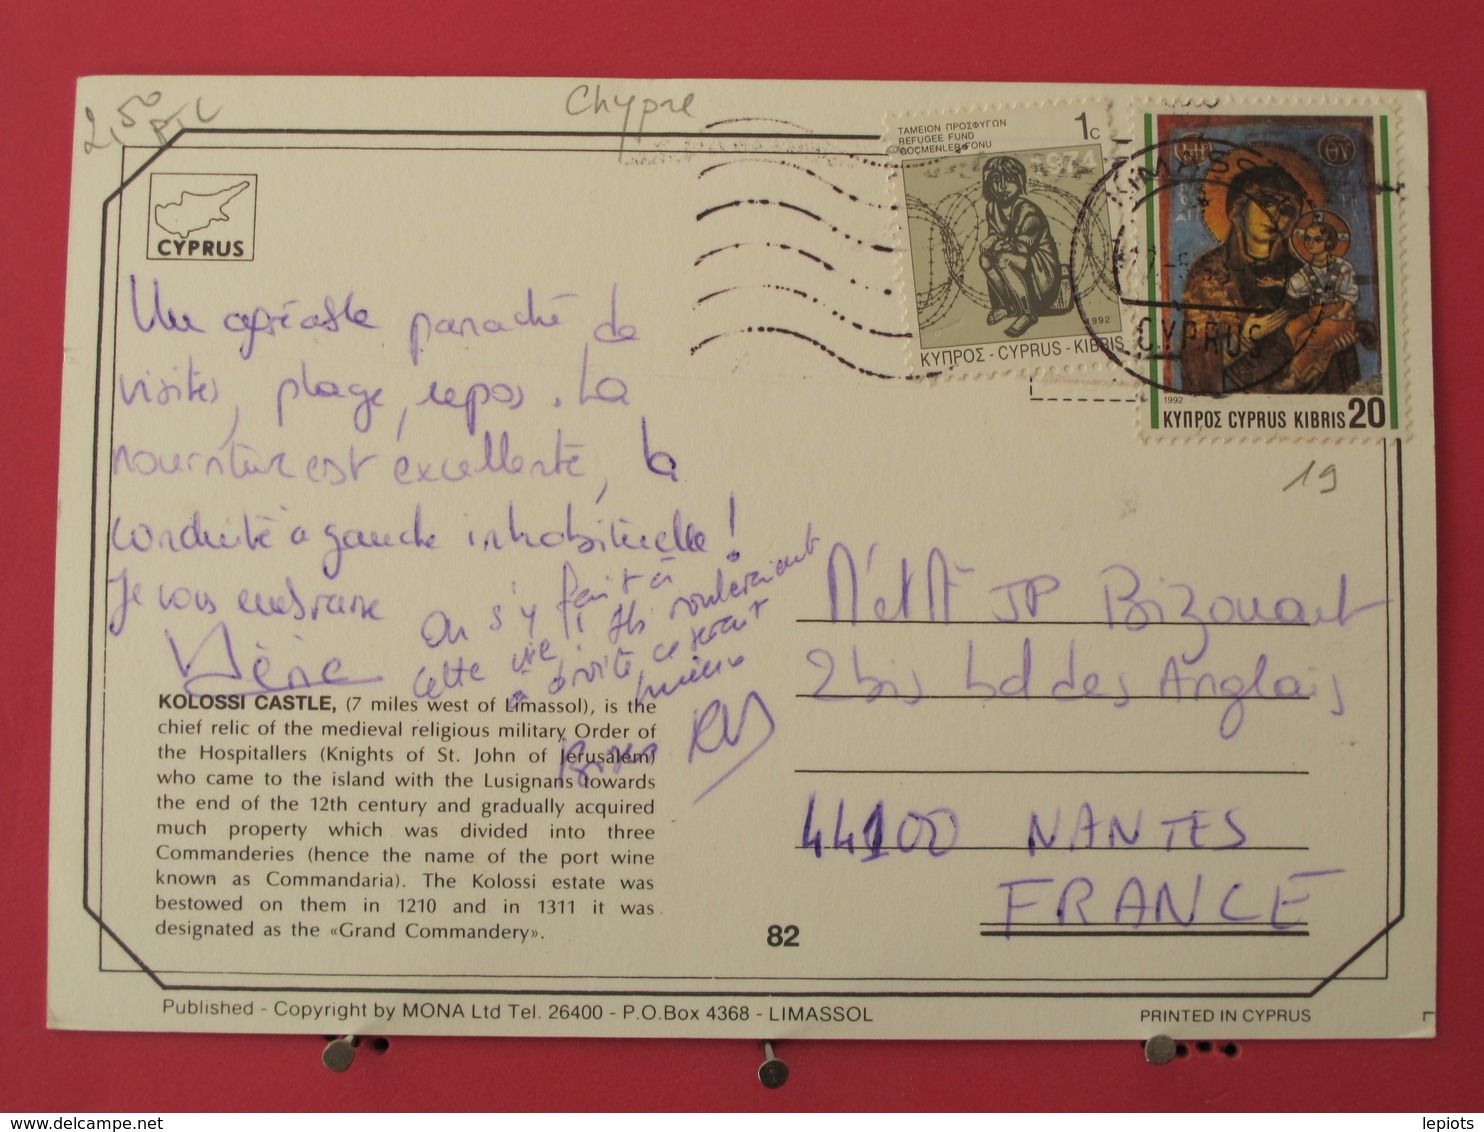 2,50
Chypre
ΤΑΜΕΙΟΝ ΠΡΟΣΦΥΓΩΝ
REFUGEE FUND
GÖÇMENLER FONU
1c
1974
1992
ΚΥΠΡΟΣ - CYPRUS - KIBRIS
LIMASSOL
CYPRUS
ΜΗΡ
ΘΥ
1992
ΚΥΠΡΟΣ CYPRUS KIBRIS 20
19
CYPRUS
Un agréable panaché de
visites, plage, repos. La
nourriture est excellente, la
conduite à gauche inhabituelle!
Je vous embrasse
On s'y fait à
cette vie! Ils rouleraient
à droite ce serait
mieux
Bises
M et Mme JP Bizouart
2bis bd des Anglais
44100 NANTES
FRANCE
KOLOSSI CASTLE, (7 miles west of Limassol), is the
chief relic of the medieval religious military Order of
the Hospitallers (Knights of St. John of Jerusalem)
who came to the island with the Lusignans towards
the end of the 12th century and gradually acquired
much property which was divided into three
Commanderies (hence the name of the port wine
known as Commandaria). The Kolossi estate was
bestowed on them in 1210 and in 1311 it was
designated as the «Grand Commandery».
82
Published - Copyright by MONA Ltd Tel. 26400 - P.O.Box 4368 - LIMASSOL
PRINTED IN CYPRUS
delcampe.net
lepiots